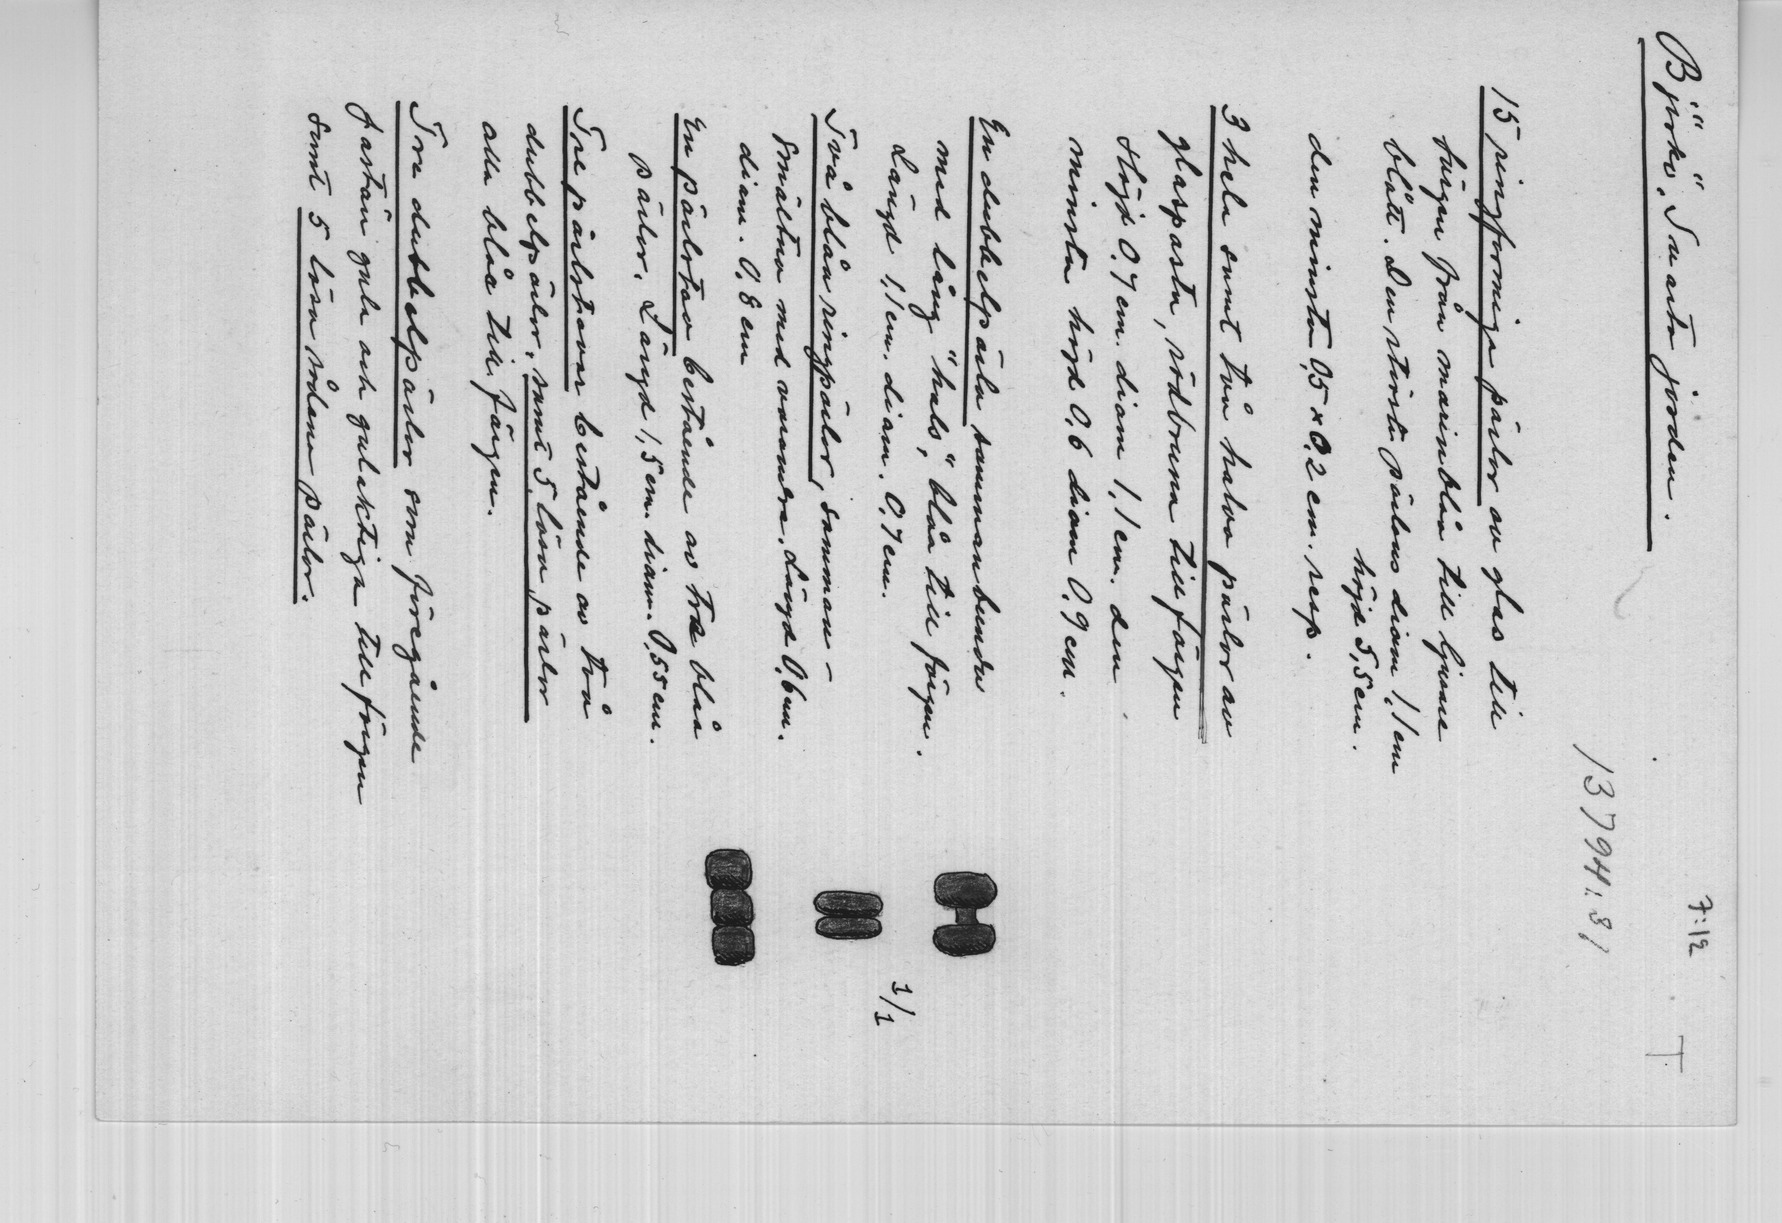 7:12
T
Björkö, "Svarta jorden".
13794:81
15 ringformiga pärlor av glas till
färgen från marinblå till ljusare
blått. Den största pärlans diam 1,1 cm
höjd 5,5 cm.
den minsta 0,5 x 0,2 cm. resp.
3 hela samt två halva pärlor av
glaspasta, rödbruna till färgen
Höjd 0,7 cm. diam 1,1 cm. den
minsta höjd 0,6 diam 0,9 cm.
En dubbelpärla sammanbunden
med lång "hals", blåa till färgen.
Längd 1,1 cm. diam. 0,7 cm.
Två blåa ringpärlor, samman-
smälta med varandra. Längd 0,6 cm.
diam. 0,8 cm
1/1
En pärlstav bestående av tre blåa
pärlor. Längd 1,5 cm. diam. 0,55 cm.
Tre pärlstavar bestående av två
dubbelpärlor, samt 5 lösa pärlor
alla blåa till färgen.
Tre dubbelpärlor som föregående
fastän gula och gulaktiga till färgen
samt 5 lösa sådana pärlor.